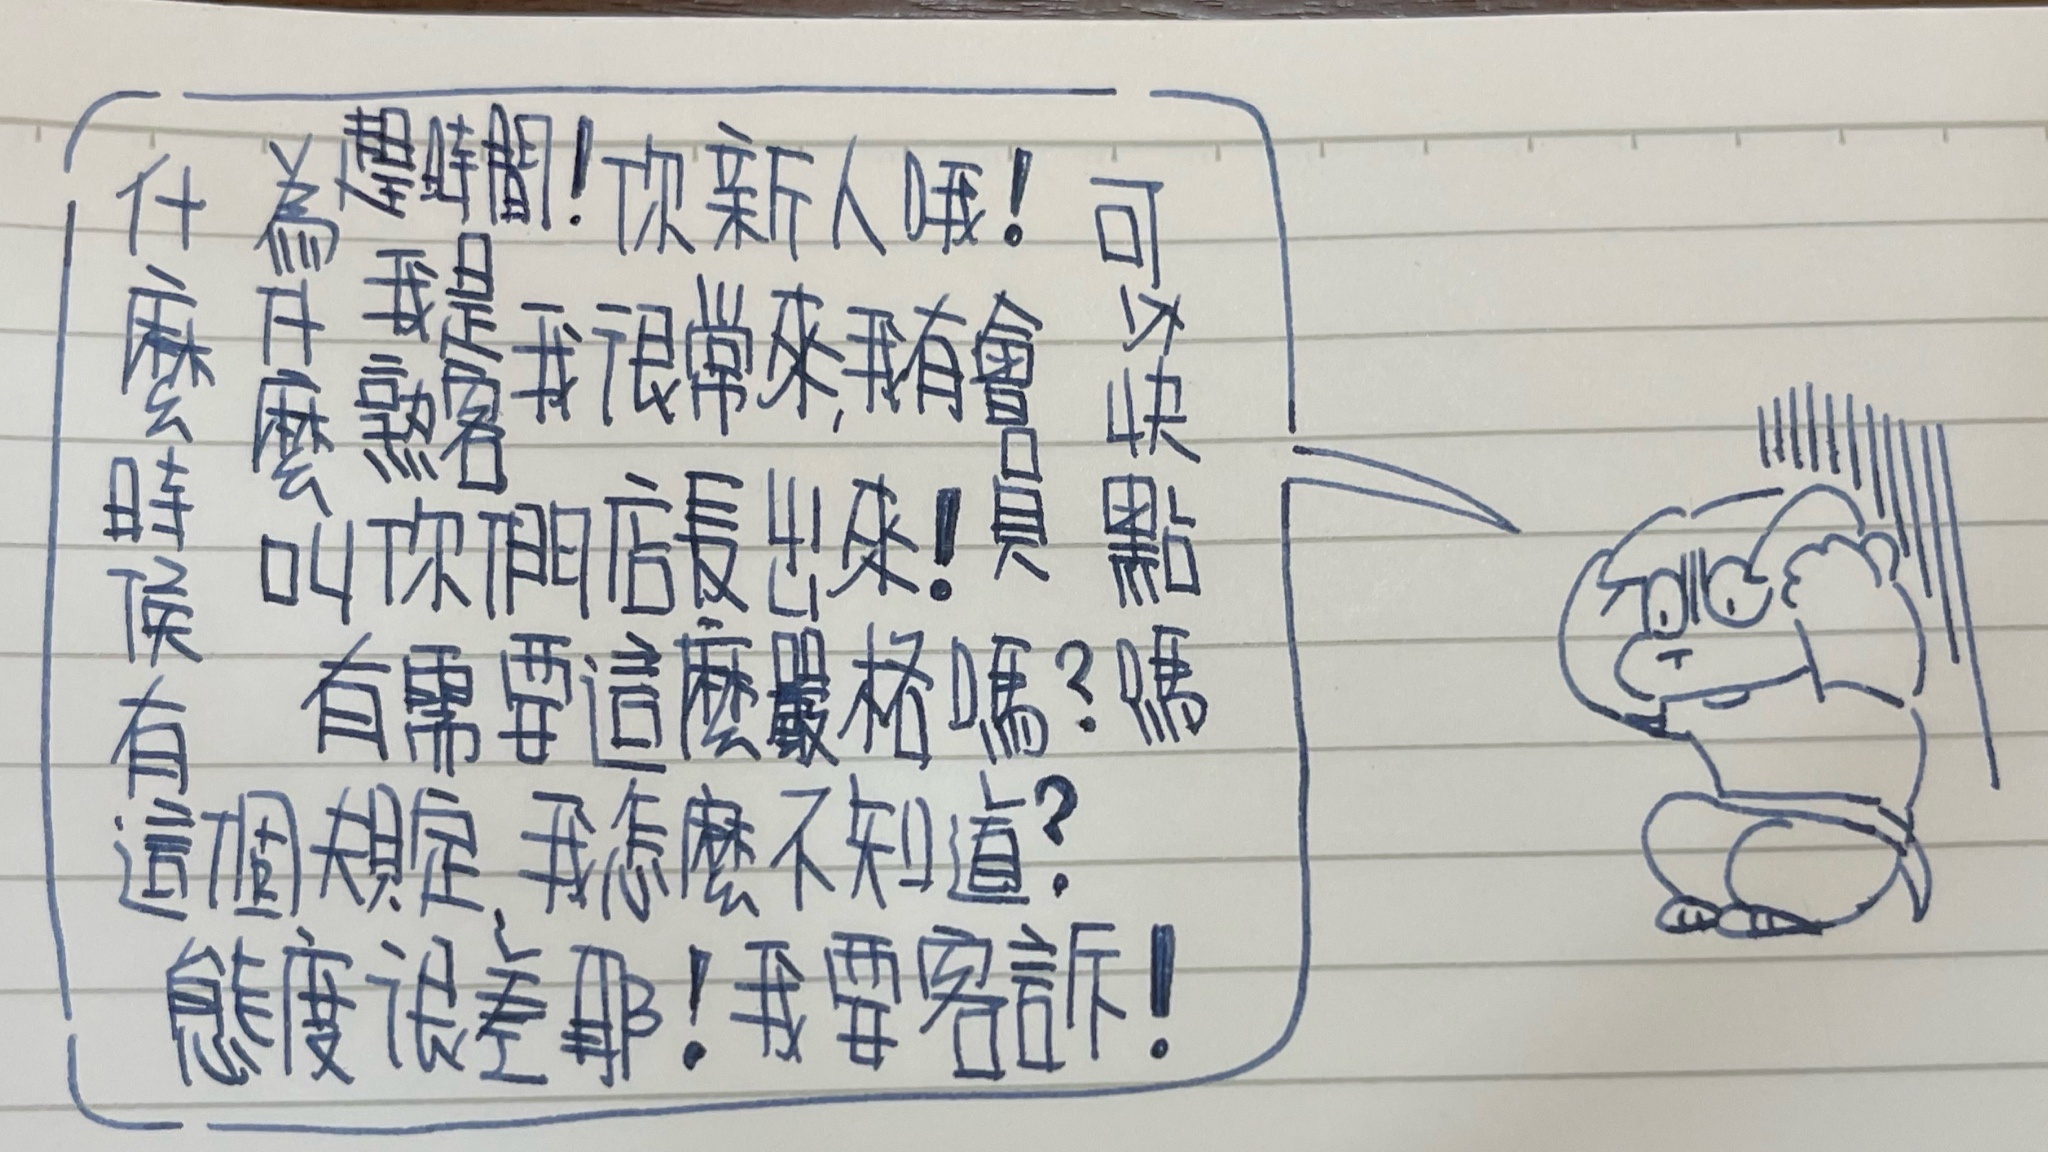 什麼時候有這個規定,我怎麼不知道?
為什麼
趕時間!
你新人哦!
我是熟客
我很常來,我有會員
可以快點嗎
叫你們店長出來!
有需要這麼嚴格嗎?
態度很差耶!我要客訴!